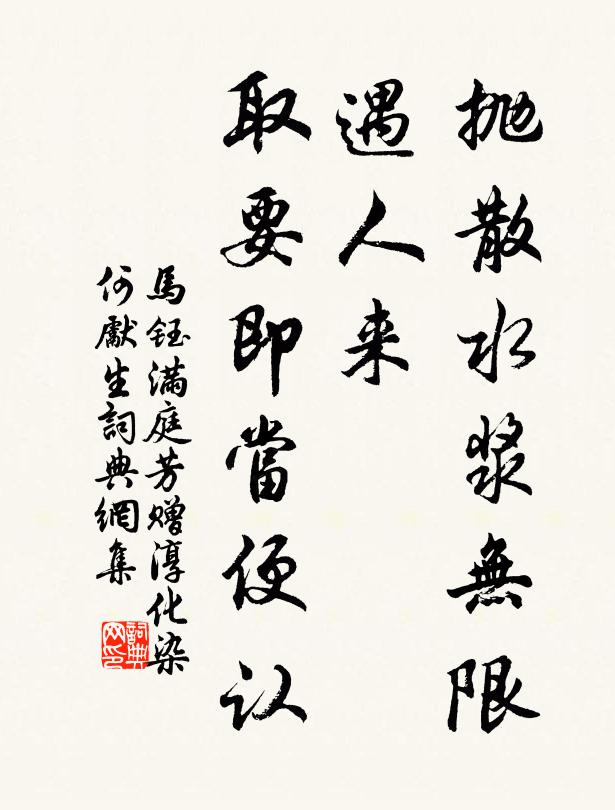 抛散水漿無限
遇人来
取要即當便认
馬鈺滿庭芳赠淳化染
何獻生詞典網集
詞典网印